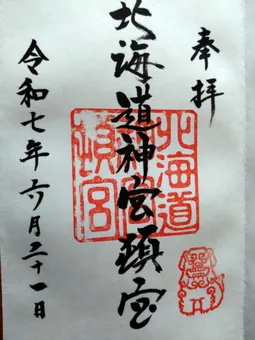 奉拝
北海道神宮頓宮
北海道神宮頓宮
令和七年六月二十一日